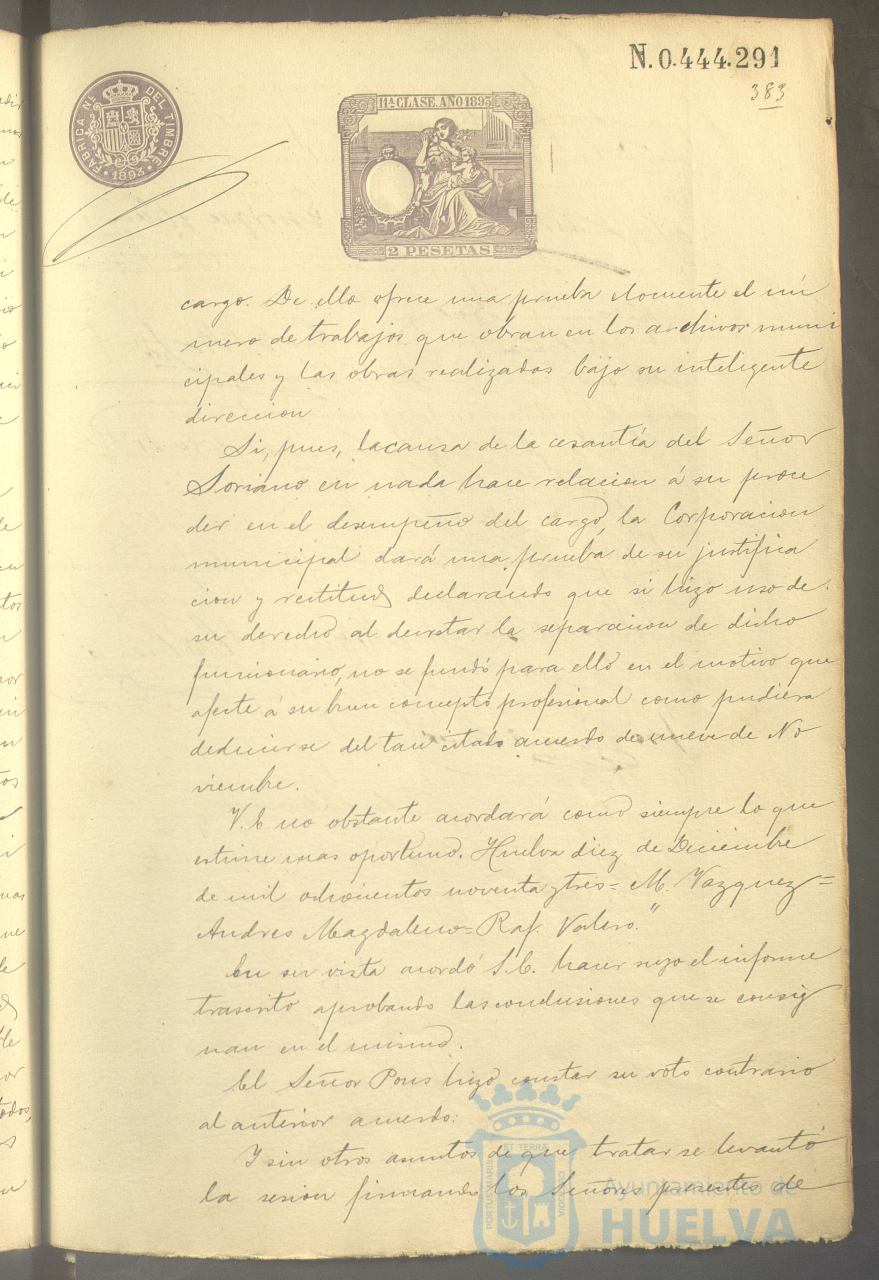 N.0.444.291
383
FABRICA Nl. DEL TIMBRE
1893
11ª CLASE. AÑO 1893
2 PESETAS
cargo. De ello ofrece una prueba elocuente el nú
mero de trabajos que obran en los archivos muni
cipales y las obras realizadas bajo su inteligente
direccion
Si, pues, la causa de la cesantía del Señor
Soriano en nada hace relacion á su proce
der en el desempeño del cargo, la Corporacion
municipal dará una prueba de su justifica
cion y rectitud declarando que si hizo uso de
su derecho al decretar la separacion de dicho
funcionario, no se fundó para ello en el motivo que
afecte á su buen concepto profesional como pudiera
deducirse del tan citado acuerdo de nueve de No
viembre.
V. E. no obstante acordará como siempre lo que
estime mas oportuno. Huelva diez de Diciembre
de mil ochocientos noventa y tres = M. Vazquez =
Andres Magdaleno = Raf. Valero."
En su vista acordó S. E. hacer suyo el informe
trascrito aprobando las conclusiones que se consig
nan en el mismo.
El Señor Pons hizo constar su voto contrario
al anterior acuerdo.
Y sin otros asuntos de que tratar se levantó
la sesion firmando los Señores presentes de
PORTUS MARIS ET TERRÆ CUSTODIA
Ayuntamiento de
HUELVA